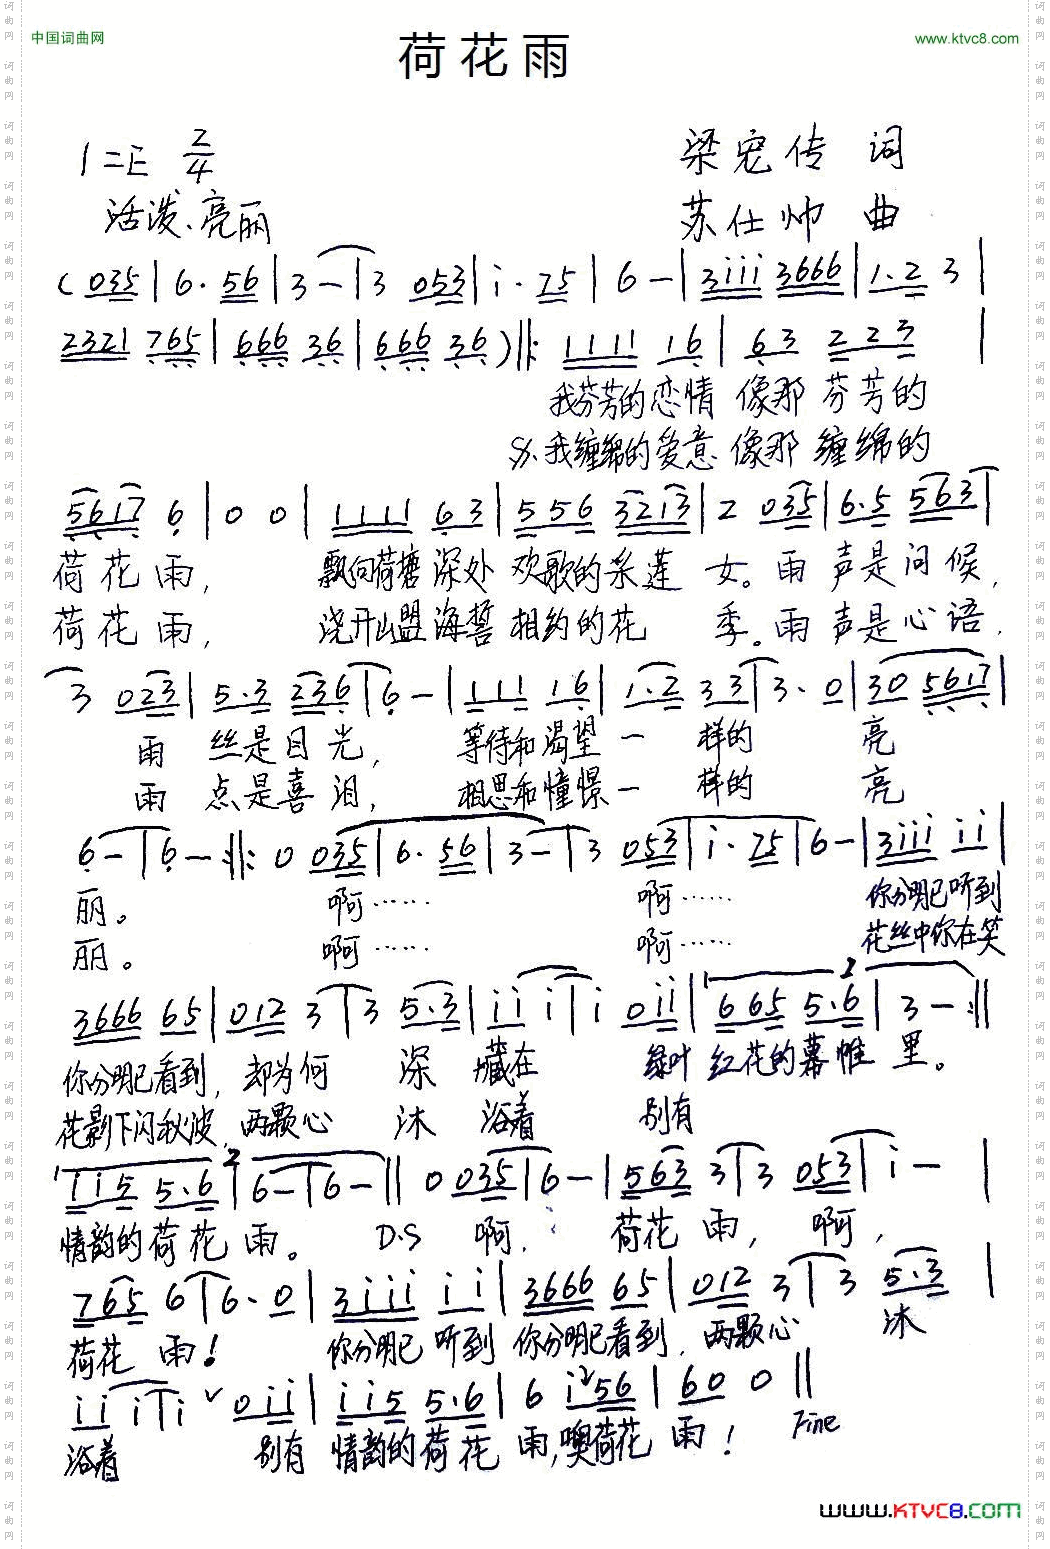 中国词曲网
www.ktvc8.com
荷花雨
1=E 2/4
梁宠传 词
活泼、亮丽
苏仕帅 曲
( 035 | 6· 56 | 3 - | 3 053 | i· 75 | 6 - | 3iii 3666 | 1·2 3 |
2321 765 | 666 36 | 666 36 ) ‖: 1111 16 | 63 223 |
我芬芳的恋情 像那 芬芳的
我缠绵的爱意 像那 缠绵的
5617 6 | 0 0 | 1111 63 | 556 3213 | 2 035 | 6·5 563 |
荷花雨, 飘向荷塘深处 欢歌的采莲 女。雨 声是问候,
荷花雨, 浇开山盟海誓 相约的花 季。雨 声是心语,
3 023 | 5·3 236 | 6 - | 111 16 | 1·2 33 | 3· 0 | 30 5617 |
雨 丝是目光, 等待和渴望一 样的 亮
雨 点是喜泪, 相思和憧憬一 样的 亮
6 - | 6 - :‖: 0 035 | 6· 56 | 3 - | 3 053 | i· 75 | 6 - | 3iii ii |
丽。 啊…… 啊…… 你分明已听到
丽。 啊…… 啊…… 花丝中你在笑
3666 65 | 012 3 | 3 5·3 | ii i | i 0ii | 1 665 5·6 | 2 3 - :‖
你分明已看到, 却为何 深 藏在 绿叶 红花的幕帷 里。
花影下闪秋波, 两颗心 沐 浴着 别有
1 ii5 5·6 | 2 6 - | 6 - ‖ 0 035 | 6 - | 563 3 | 3 053 | i - |
情韵的荷花 雨。 D.S 啊, 荷花 雨, 啊,
765 6 | 6· 0 | 3iii ii | 3666 65 | 012 3 | 3 5·3 |
荷花 雨! 你分明已 听到 你分明已看到, 两颗心 沐
ii i | i 0ii | ii5 5·6 | 6 i 56 | 60 0 ‖
浴着 别有 情韵的荷花 雨,噢荷花 雨! Fine
www.KTVC8.com